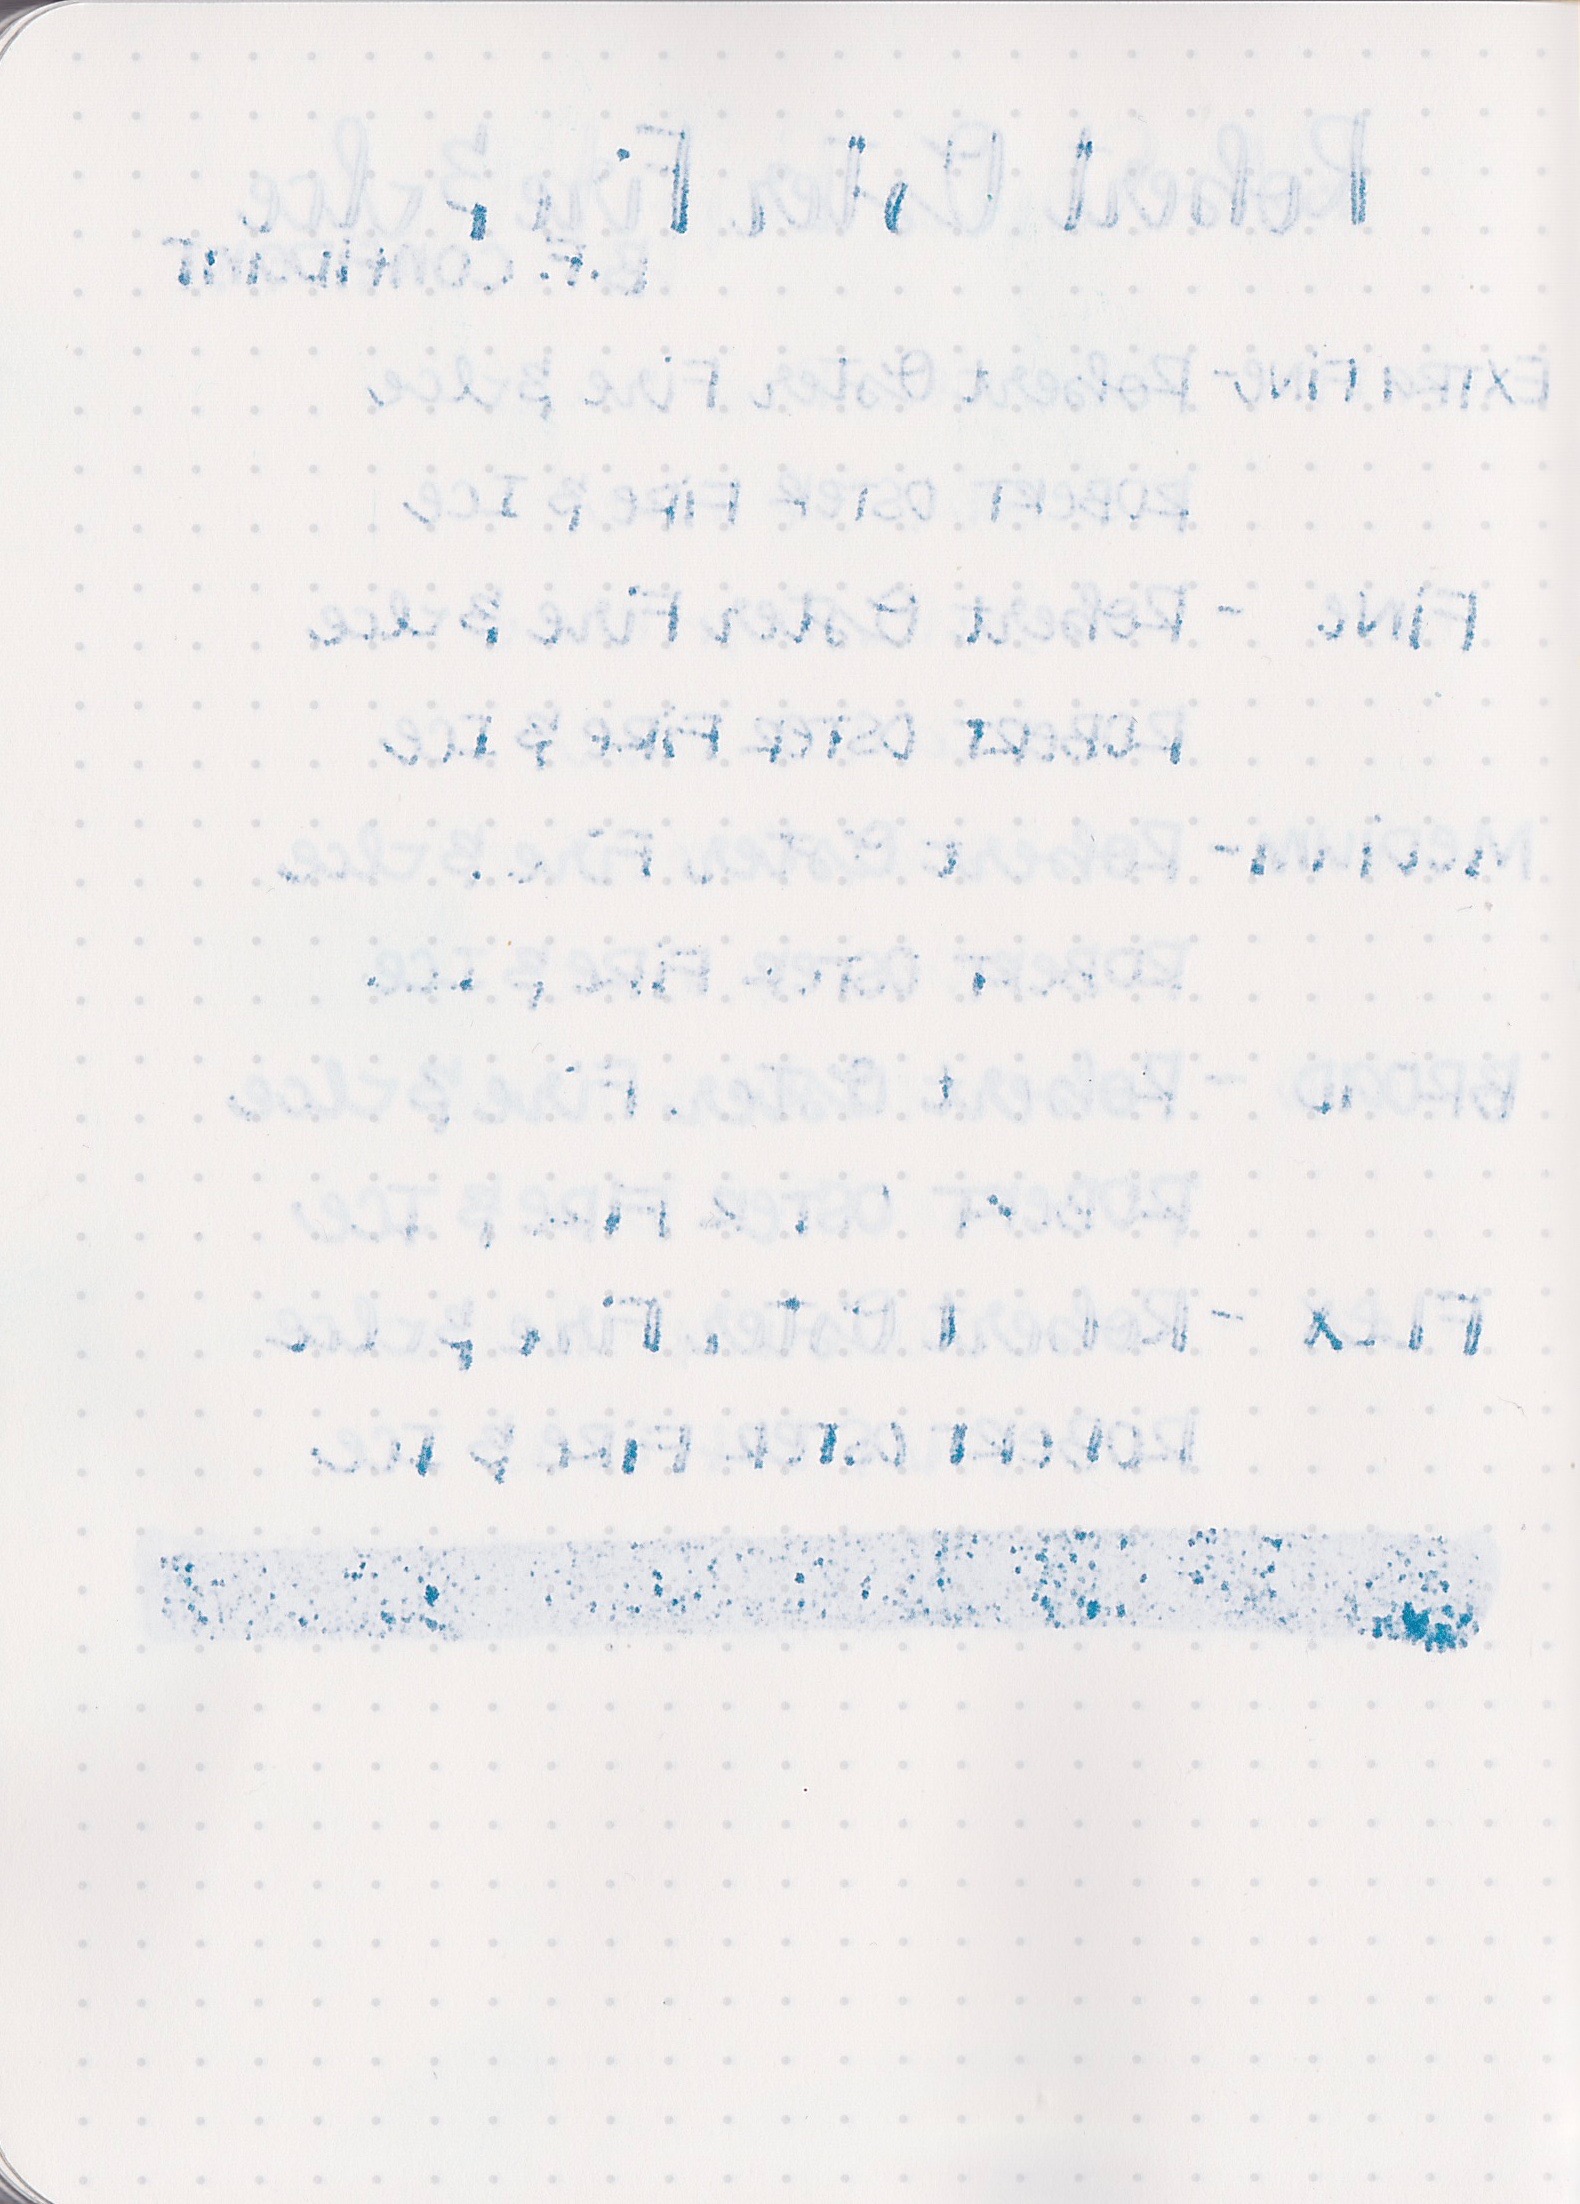 Robert Oster Fire & Ice
B.F. CONFIDANT
EXTRA FINE - Robert Oster Fire & Ice
ROBERT OSTER FIRE & ICE
FINE - Robert Oster Fire & Ice
ROBERT OSTER FIRE & ICE
MEDIUM - Robert Oster Fire & Ice
ROBERT OSTER FIRE & ICE
BROAD - Robert Oster Fire & Ice
ROBERT OSTER FIRE & ICE
FLEX - Robert Oster Fire & Ice
ROBERT OSTER FIRE & ICE